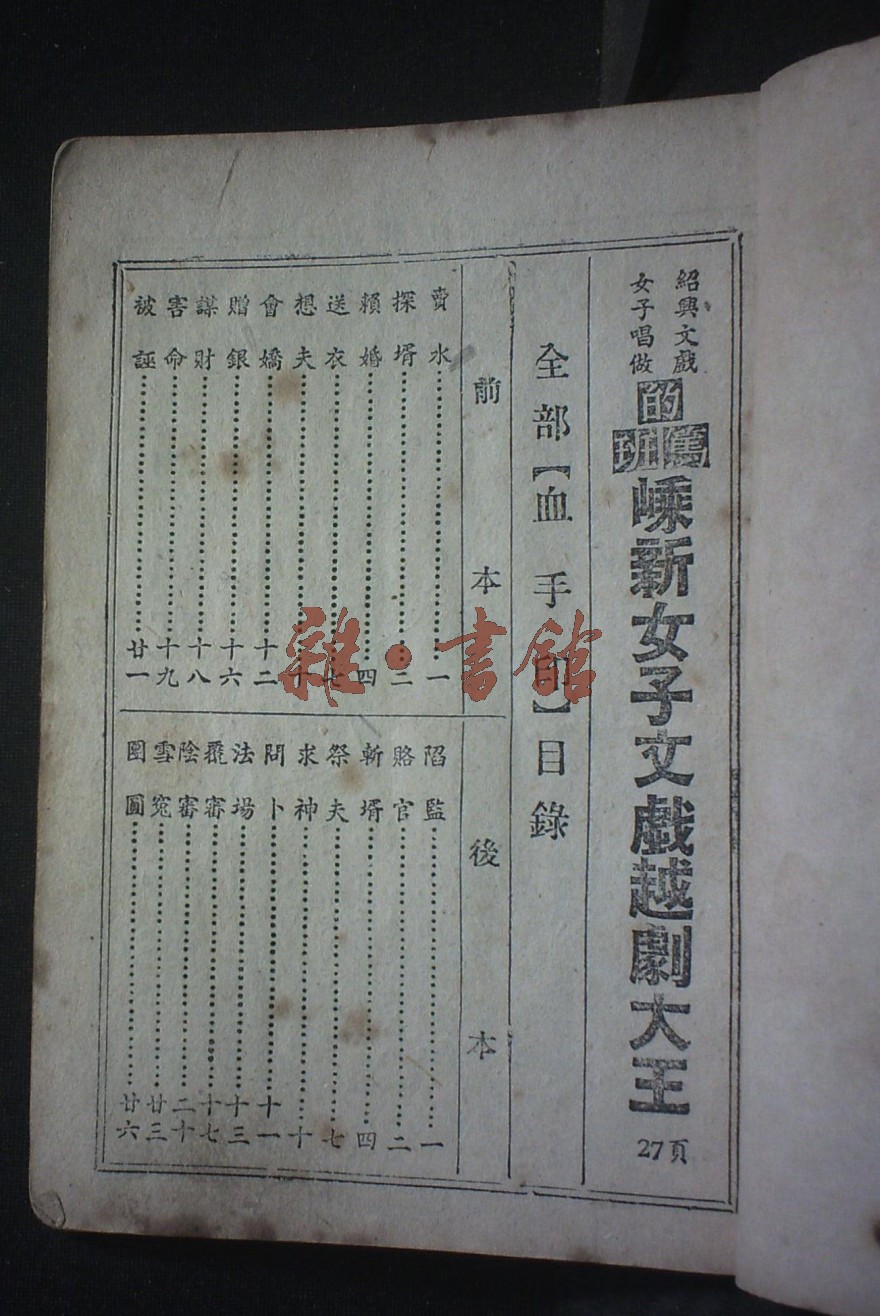 紹興文戲
女子唱做
的篤班
嵊新女子文戲越劇大王
27頁
全部【血手印】目錄
前本
賣水……一
探壻……二
賴婚……四
送衣……七
想夫……十
會嬌……十二
贈銀……十六
謀財……十八
害命……十九
被誣……廿一
後本
陷監……一
賂官……二
斬壻……四
祭夫……七
求神……十
問卜……十一
法場……十三
審……十七
陰審……二十
雪冤……廿三
團圓……廿六
雜·書館